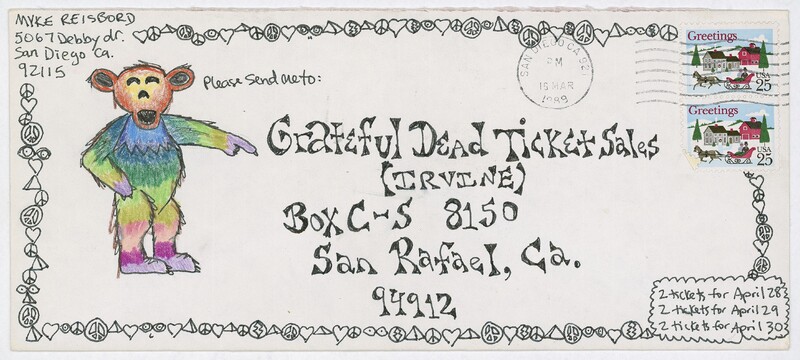 MYKE REISBORD
5067 Debby dr.
San Diego Ca.
92115
Please Send me to:
SAN DIEGO CA 921
PM
15 MAR
1989
Greetings
USA
25
Greetings
USA
25
Grateful Dead Ticket Sales
(IRVINE)
Box C-S 8150
San Rafael, Ca.
94912
2 tickets for April 28
2 tickets for April 29
2 tickets for April 30